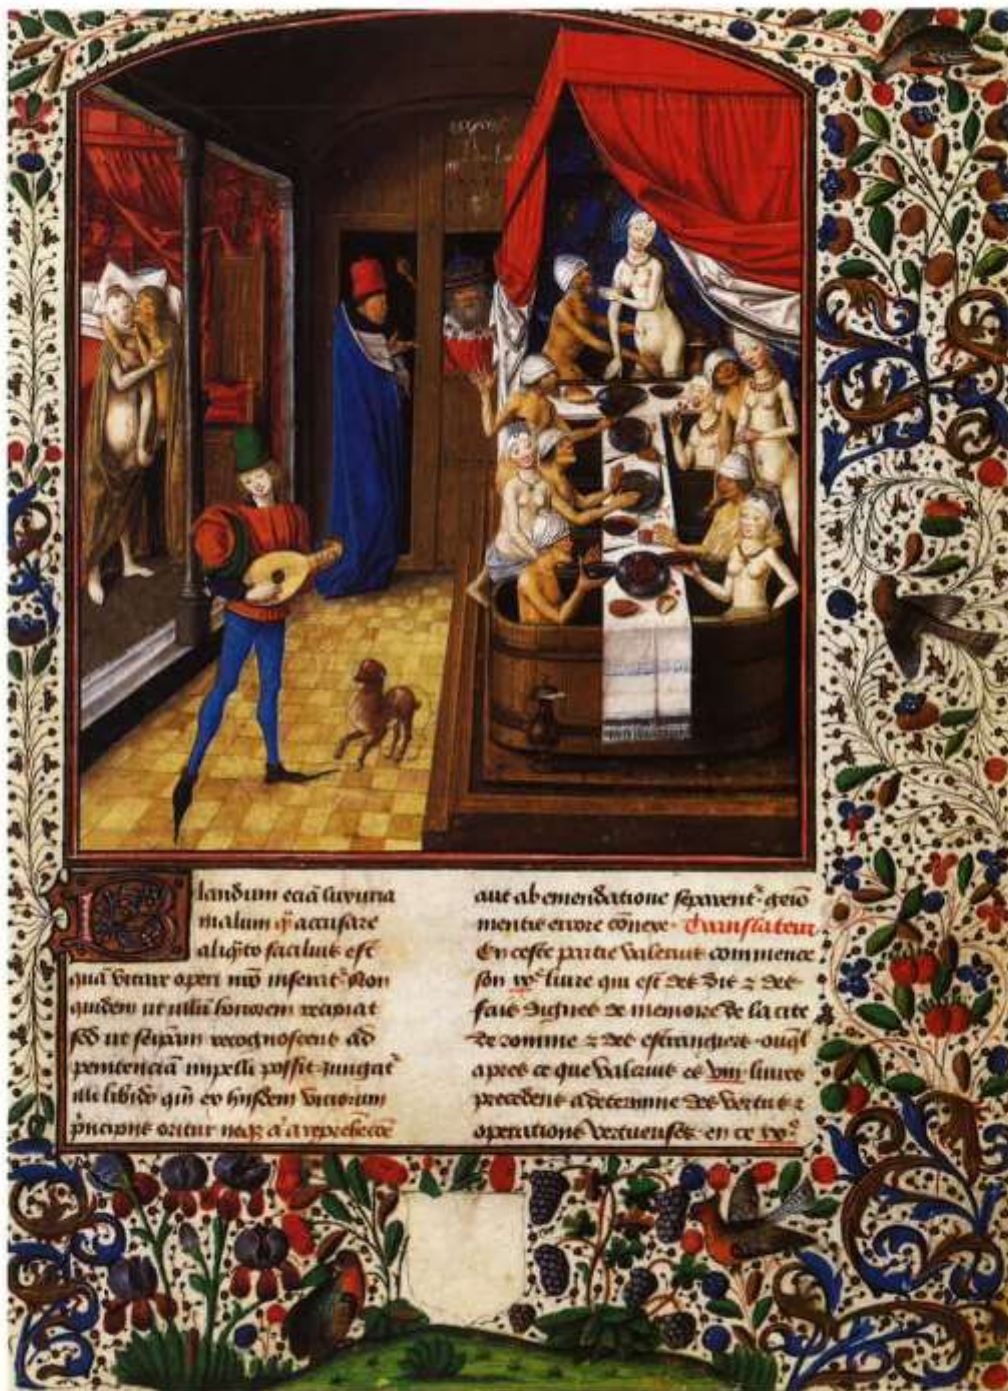 Blandum eciā luxuria
malum q̄ accusare
aliq̄to facilius est
quā vitare operi nr̄o inserat᷑ Non
quidem ut ullū honorem recipiat
sed ut seipsam recognoscens ad
penitenciam impelli possit Iungat᷑
illi libido quī ex hiisdem viciorum
principiis oritur neq̄ a a reprehēcōe
aut ab emendatione separent᷑ geīo
mentis errore cōnexe Translateur
En ceste partie valerius commence
son ixᵉ livre qui est des dis ⁊ des
fais dignes de memoire de la cite
de romme ⁊ des estrangiers ouq̄l
apres ce que valerius es viii livres
precedens a determine des vertus ⁊
operations vertueuses en ce ixᵉ